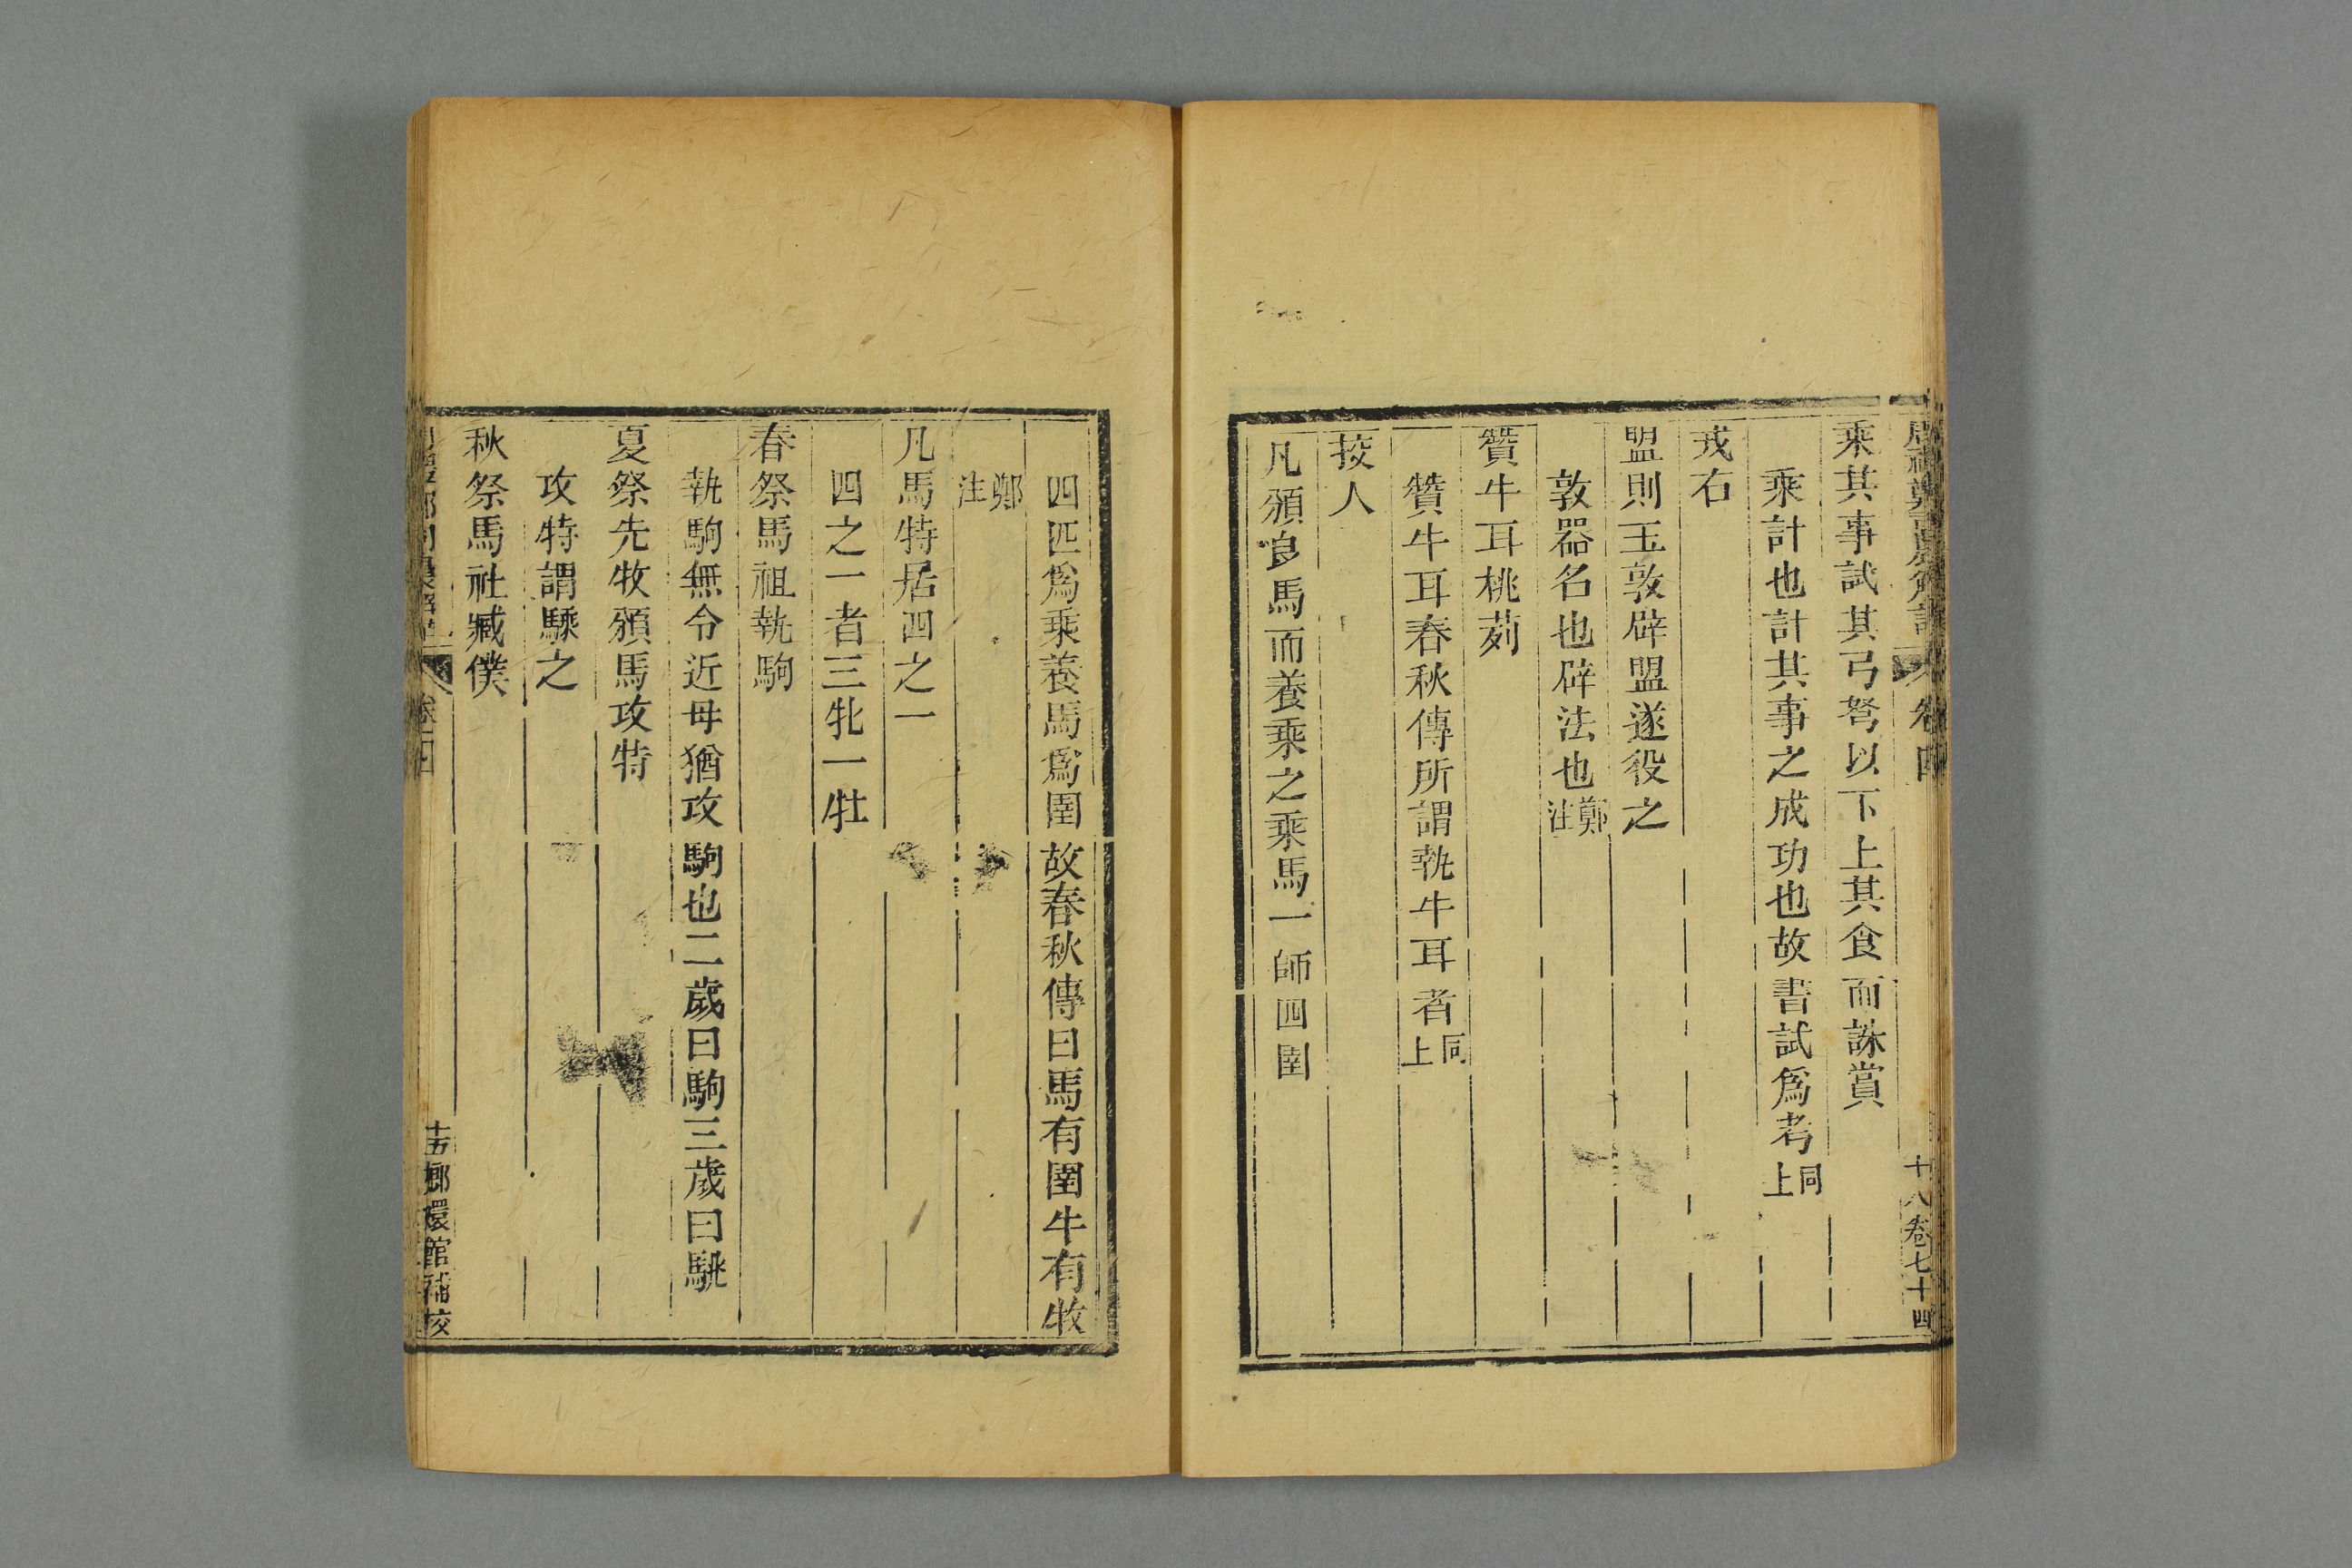 乘其事試其弓弩以下上其食而誅賞
乘計也計其事之成功也故書試爲考同上
戎右
盟則玉敦辟盟遂役之
敦器名也辟法也鄭注
贊牛耳桃茢
贊牛耳春秋傳所謂執牛耳者同上
挍人
凡頒良馬而養乘之乘馬一師四圉
四匹爲乘養馬爲圉故春秋傳曰馬有圉牛有牧
鄭注
凡馬特居四之一
四之一者三牝一牡
春祭馬祖執駒
執駒無令近母猶攻駒也二歲曰駒三歲曰駣
夏祭先牧頒馬攻特
攻特謂騬之
秋祭馬社臧僕
十八卷七十四
卷四
十五鄉嬛館補校